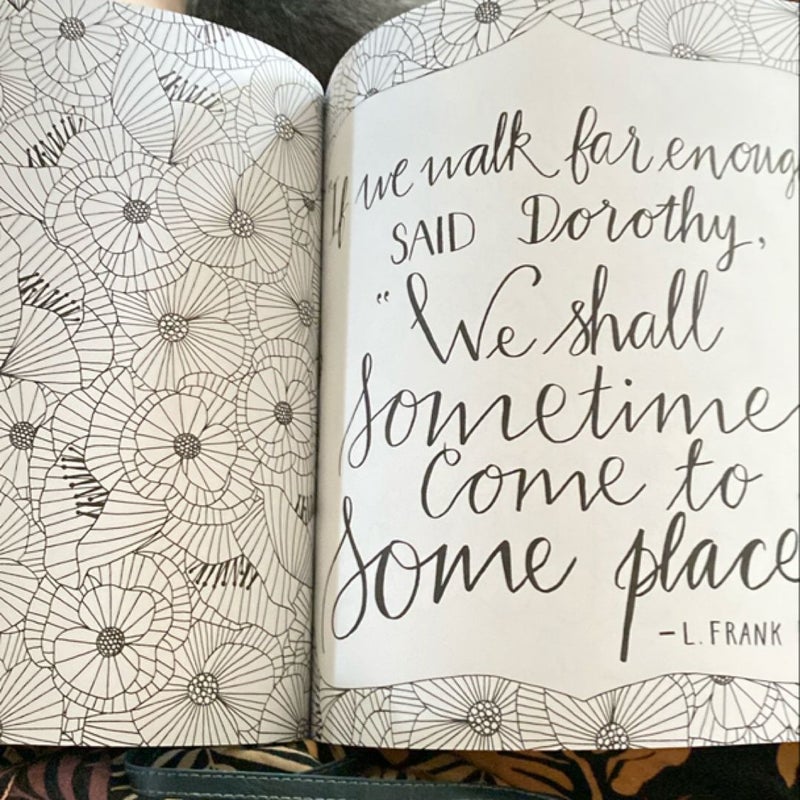 "If we walk far enoug
SAID Dorothy,
"We shall
sometime
come to
some place
- L. FRANK